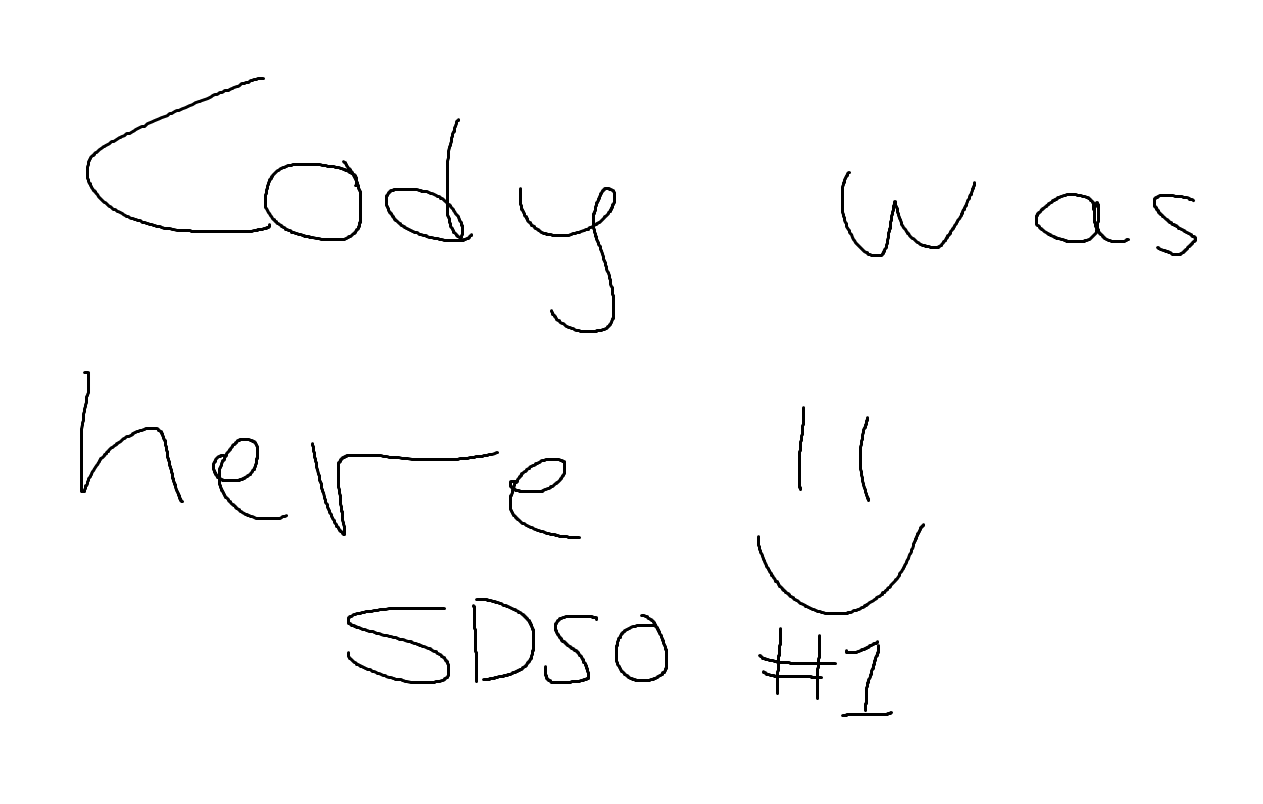 Cody was
here
SDSO #1